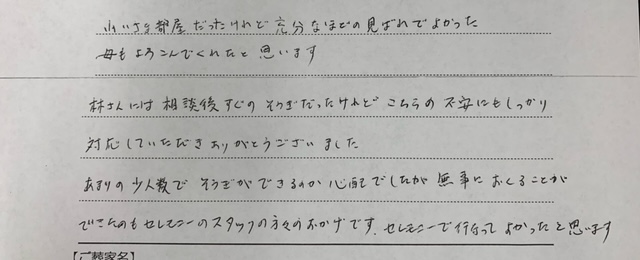 小いさな部屋だったけれど充分なほどの見ばれでよかった
母もよろこんでくれたと思います
林さんには相談後すぐのそうぎだったけれどこちらの不安にもしっかり
対応していただきありがとうございました
あまりの少人数でそうぎができるのか心配でしたが無事におくることが
できたのもセレモニーのスタッフの方々のおかげです、セレモニーで行なってよかったと思います
【ご葬家名】